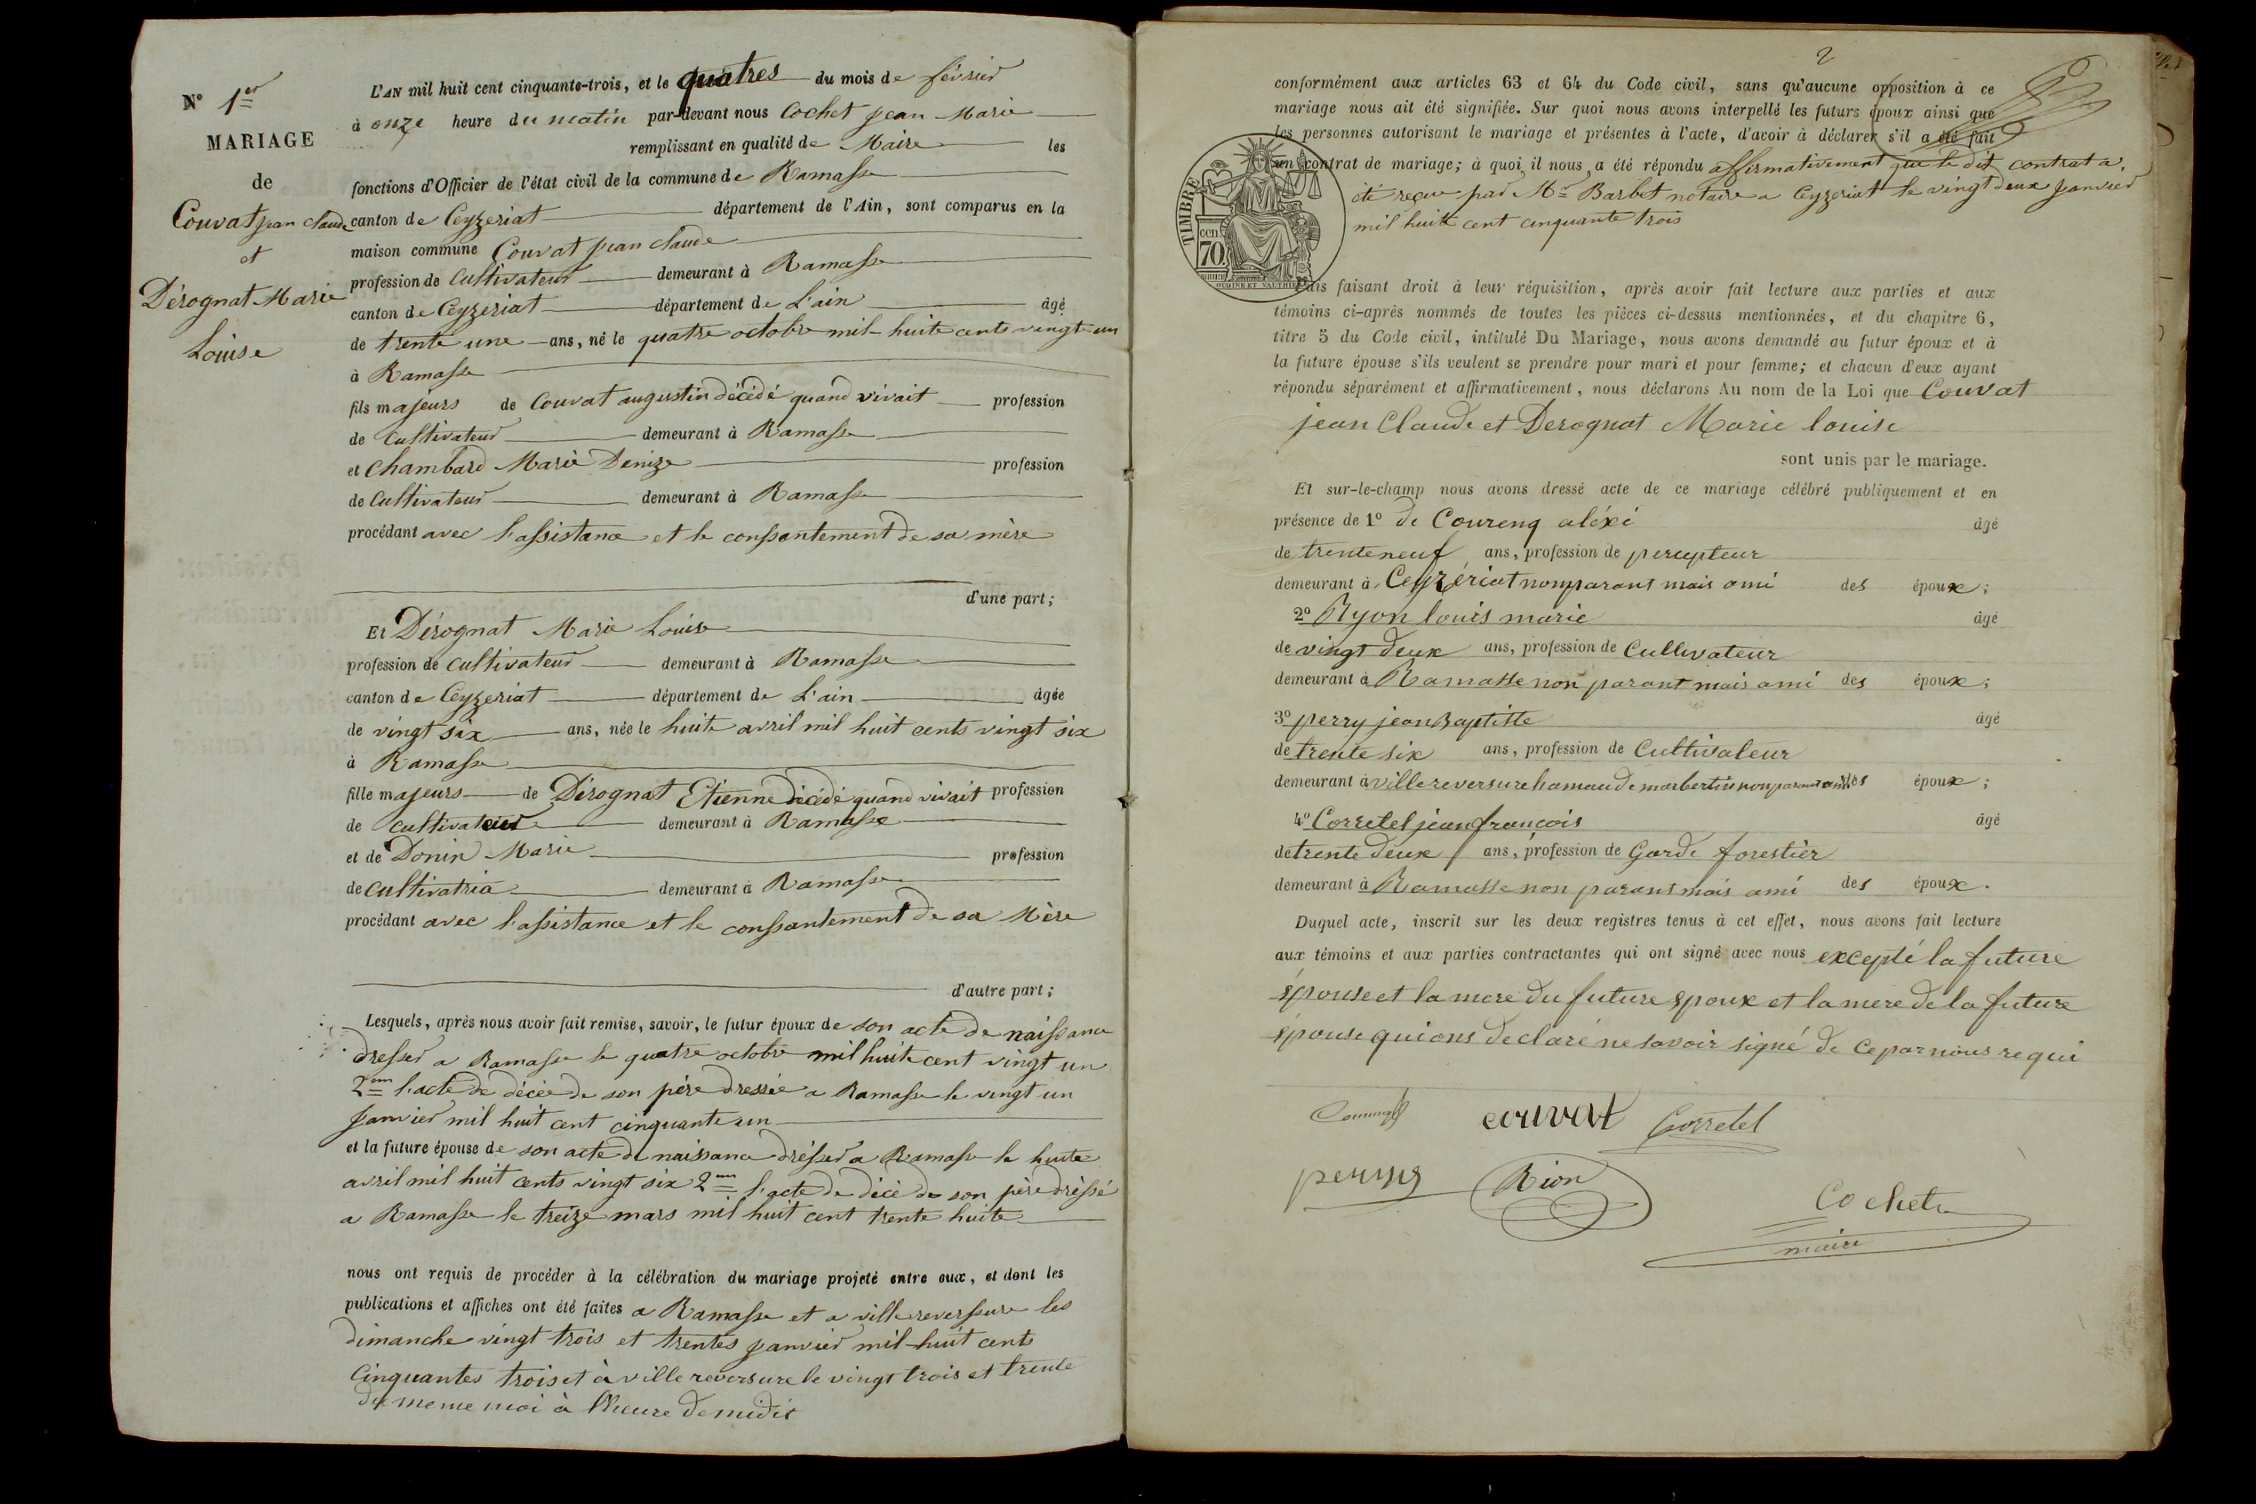 N° 1er
MARIAGE
de
Couvat jean claude
et
Dérognat Marie
Louise
L'AN mil huit cent cinquante-trois, et le quatres du mois de février
à onze heure du matin par-devant nous Cochet jean Marie
remplissant en qualité de Maire les
fonctions d'Officier de l'état civil de la commune de Ramasse
canton de Ceyzeriat département de l'Ain, sont comparus en la
maison commune Couvat jean claude
profession de Cultivateur demeurant à Ramasse
canton de Ceyzeriat département de L'ain âgé
de trente une ans, né le quatre octobre mil huite cents vingt un
à Ramasse
fils majeurs de Couvat augustin décédé quand vivait profession
de Cultivateur demeurant à Ramasse
et Chambard Marie Denize profession
de Cultivateur demeurant à Ramasse
procédant avec l'assistance et le conssentement de sa mère
d'une part;
ET Dérognat Marie Louise
profession de Cultivateur demeurant à Ramasse
canton de Ceyzeriat département de L'ain âgée
de vingt six ans, née le huite avril mil huit cents vingt six
à Ramasse
fille majeurs de Dérognat Etienne décédé quand vivait profession
de cultivateur demeurant à Ramasse
et de Donin Marie profession
de cultivatria demeurant à Ramasse
procédant avec l'assistance et le conssantement de sa Mère
d'autre part;
Lesquels, après nous avoir fait remise, savoir, le futur époux de son acte de naissance
dresser a Ramasse le quatre octobre mil huite cent vingt un
2me l'acte de décée de son père dressée a Ramasse le vingt un
janvier mil huit cent cinquante un
et la future épouse de son acte de naissance drésser a Ramasse le huite
avril mil huit cents vingt six 2me l'acte de décé de son père dréssé
a Ramasse le treize mars mil huit cent trente huite
nous ont requis de procéder à la célébration du mariage projeté entre eux, et dont les
publications et affiches ont été faites a Ramasse et a villereverssure les
dimanche vingt trois et trentes janvier mil huit cents
Cinquantes trois et à villereversure le vingt trois et trente
du meme moi à l'heure de midis
2
conformément aux articles 63 et 64 du Code civil, sans qu'aucune opposition à ce
mariage nous ait été signifiée. Sur quoi nous avons interpellé les futurs époux ainsi que
les personnes autorisant le mariage et présentes à l'acte, d'avoir à déclarer s'il a été fait
un contrat de mariage; à quoi il nous a été répondu affirmativement que le dit contrat a
été reçue par Mr Barbet notaire a Ceyzeriat le vingt deux janvier
mil huit cent cinquante trois
TIMBRE
70 cen
Puis faisant droit à leur réquisition, après avoir fait lecture aux parties et aux
témoins ci-après nommés de toutes les pièces ci-dessus mentionnées, et du chapitre 6,
titre 5 du Code civil, intitulé Du Mariage, nous avons demandé au futur époux et à
la future épouse s'ils veulent se prendre pour mari et pour femme; et chacun d'eux ayant
répondu séparément et affirmativement, nous déclarons Au nom de la Loi que Couvat
jean Claude et Derognat Marie louise
sont unis par le mariage.
Et sur-le-champ nous avons dressé acte de ce mariage célébré publiquement et en
présence de 1° de Courenq aléxi âgé
de trente neuf ans, profession de percepteur
demeurant à Ceyzériat non parant mais ami des époux;
2° Ryon louis marie âgé
de vingt deux ans, profession de Cultivateur
demeurant à Ramasse non parant mais ami des époux;
3° perry jean Baptiste âgé
de trente six ans, profession de Cultivateur
demeurant à villereversure hamau de marbertin non parant ami des époux;
4° Corretel jean francois âgé
de trente deux ans, profession de Garde forestièr
demeurant à Ramasse non parant mais ami des époux.
Duquel acte, inscrit sur les deux registres tenus à cet effet, nous avons fait lecture
aux témoins et aux parties contractantes qui ont signé avec nous excepté la future
épouse et la mere du future epoux et la mere de la future
épouse qui ons declaré ne savoir signé de ce par nous requi
couvat Corretel
perry Rion
Cochet
maire